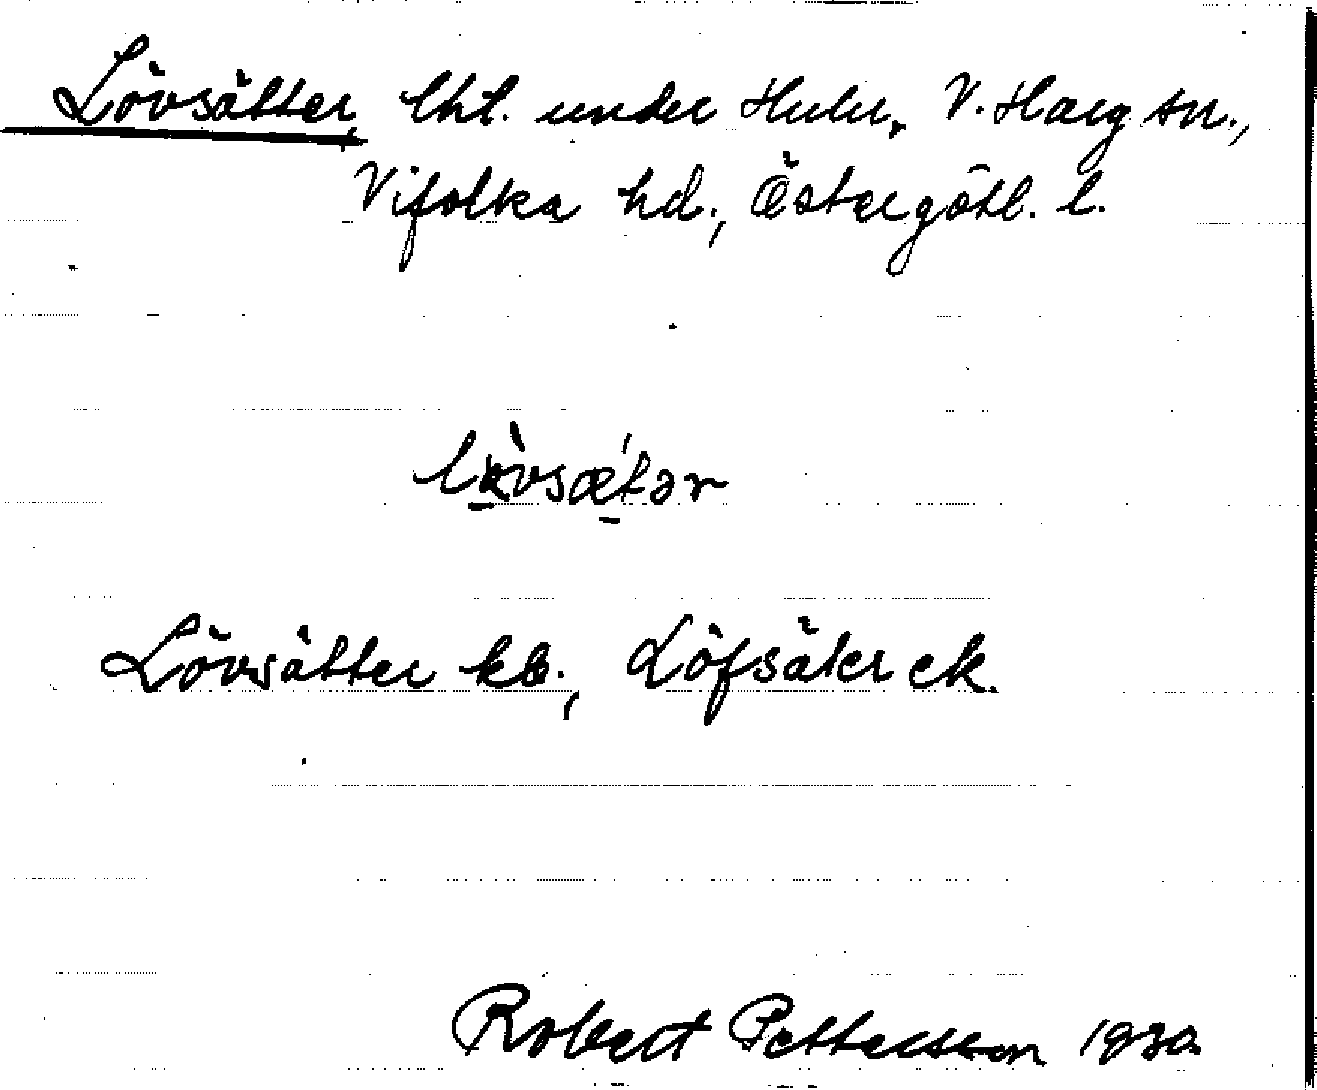 Lövsätter, lht. under Hulu, V. Harg sn.,
Vifolka hd., Östergötl. l.
lövsætər
Lövsätter kb., Löfsäter ek.
Robert Pettersson 1930.